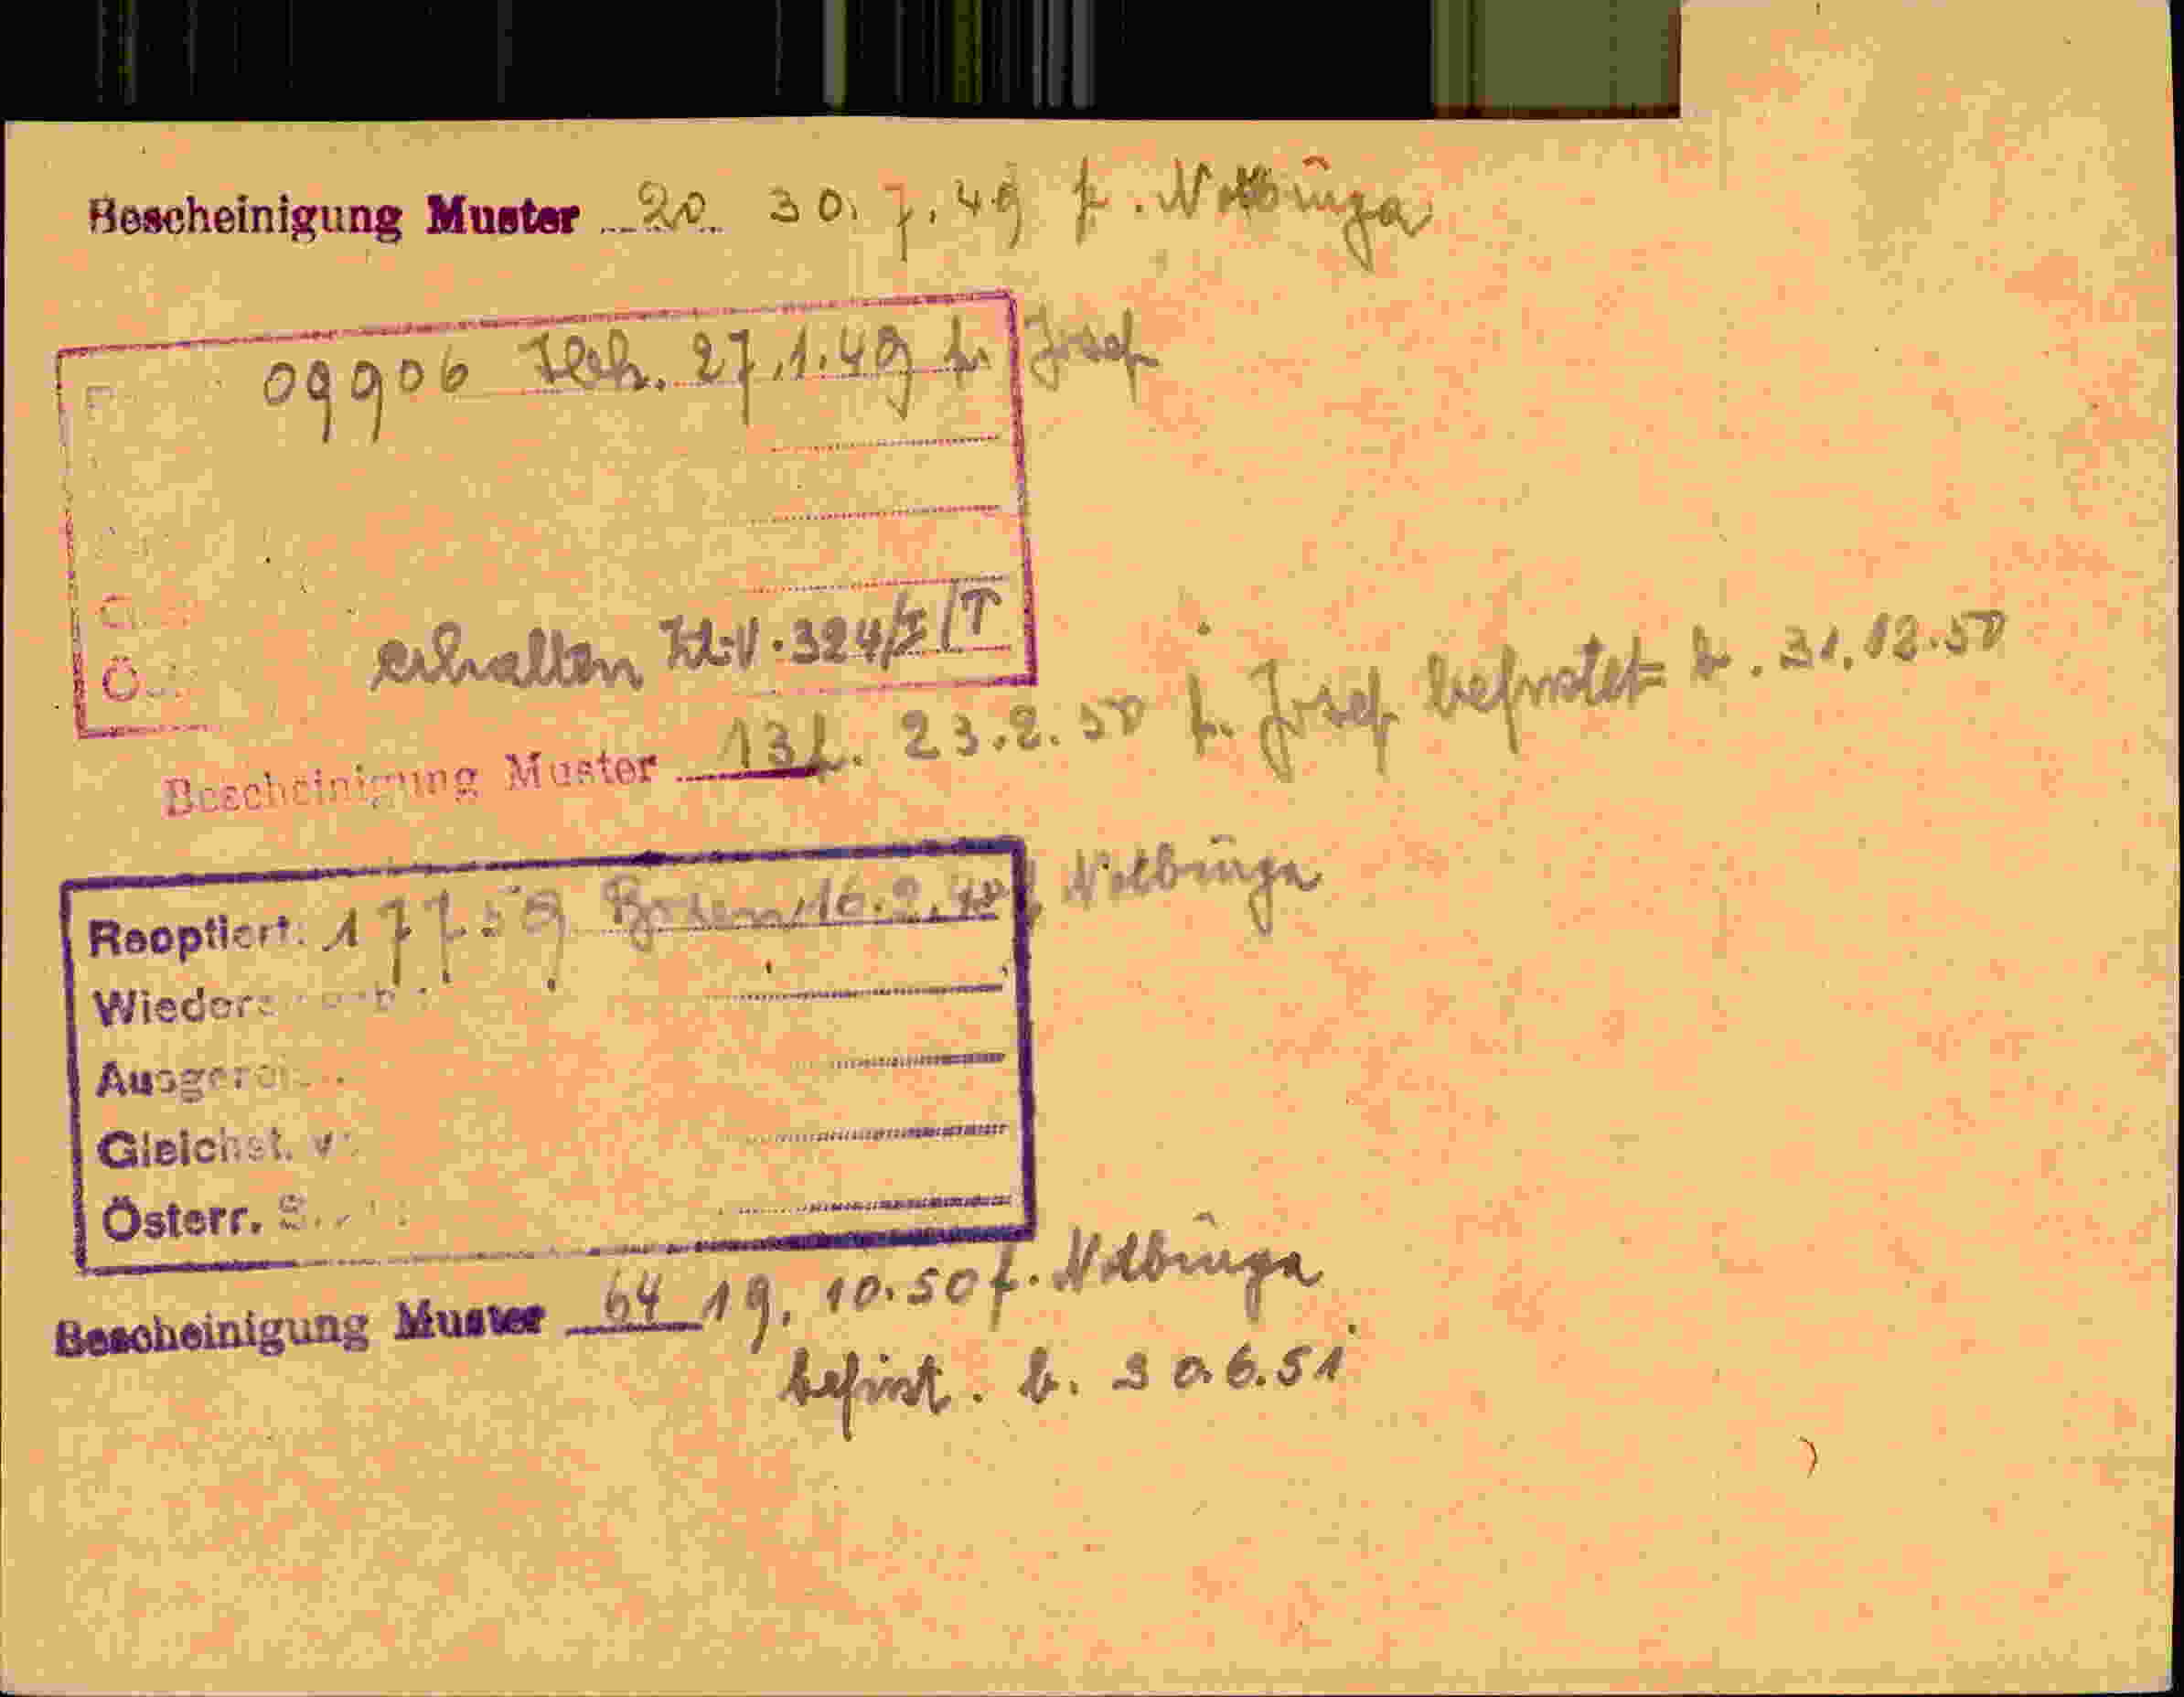 Bescheinigung Muster 20 30.7.49 f. Notburga
09906 Ibk. 27.1.49 f. Josef
erhalten
Ö
Bescheinigung Muster 13 f. 23.2.50 f. Josef befristet b. 31.12.50
Reoptiert: 17759 Bozen 16.2.48 Notburga
Wieder
Ausgerei
Gleichst.
Österr.
Bescheinigung Muster 64 19.10.50 f. Notburga
befrist. b. 30.6.51